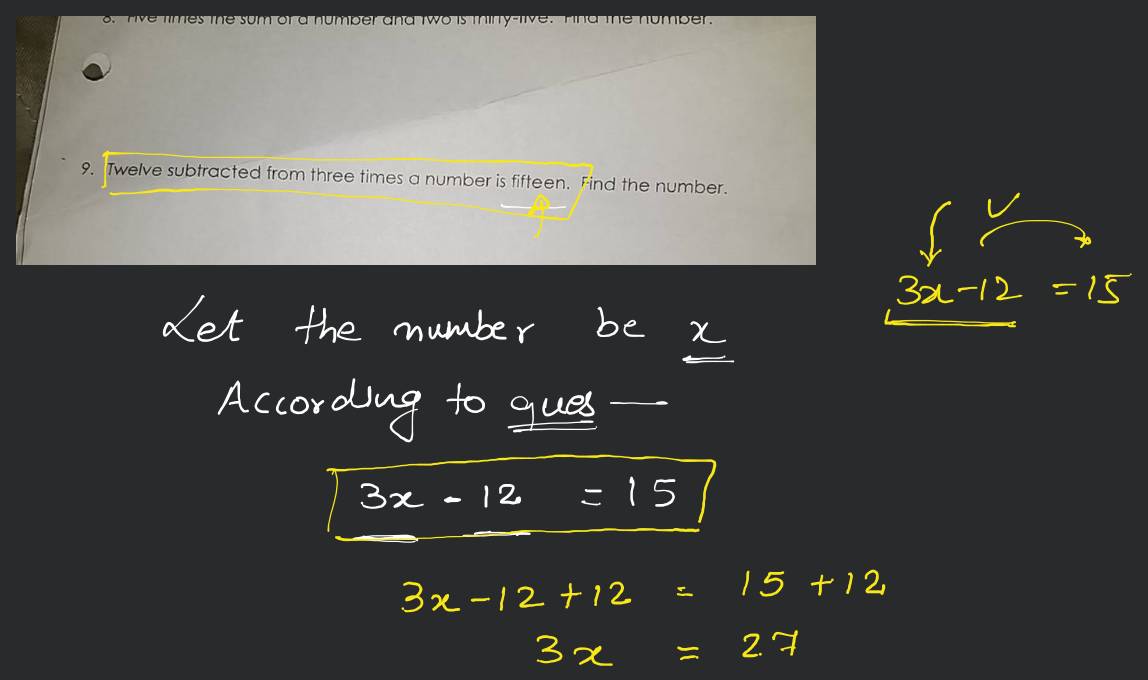 8. Five times the sum of a number and two is thirty-five. Find the number.
9. Twelve subtracted from three times a number is fifteen. Find the number.
3x-12 = 15
Let the number be x
According to ques —
3x - 12 = 15
3x-12+12 = 15 +12
3x = 27